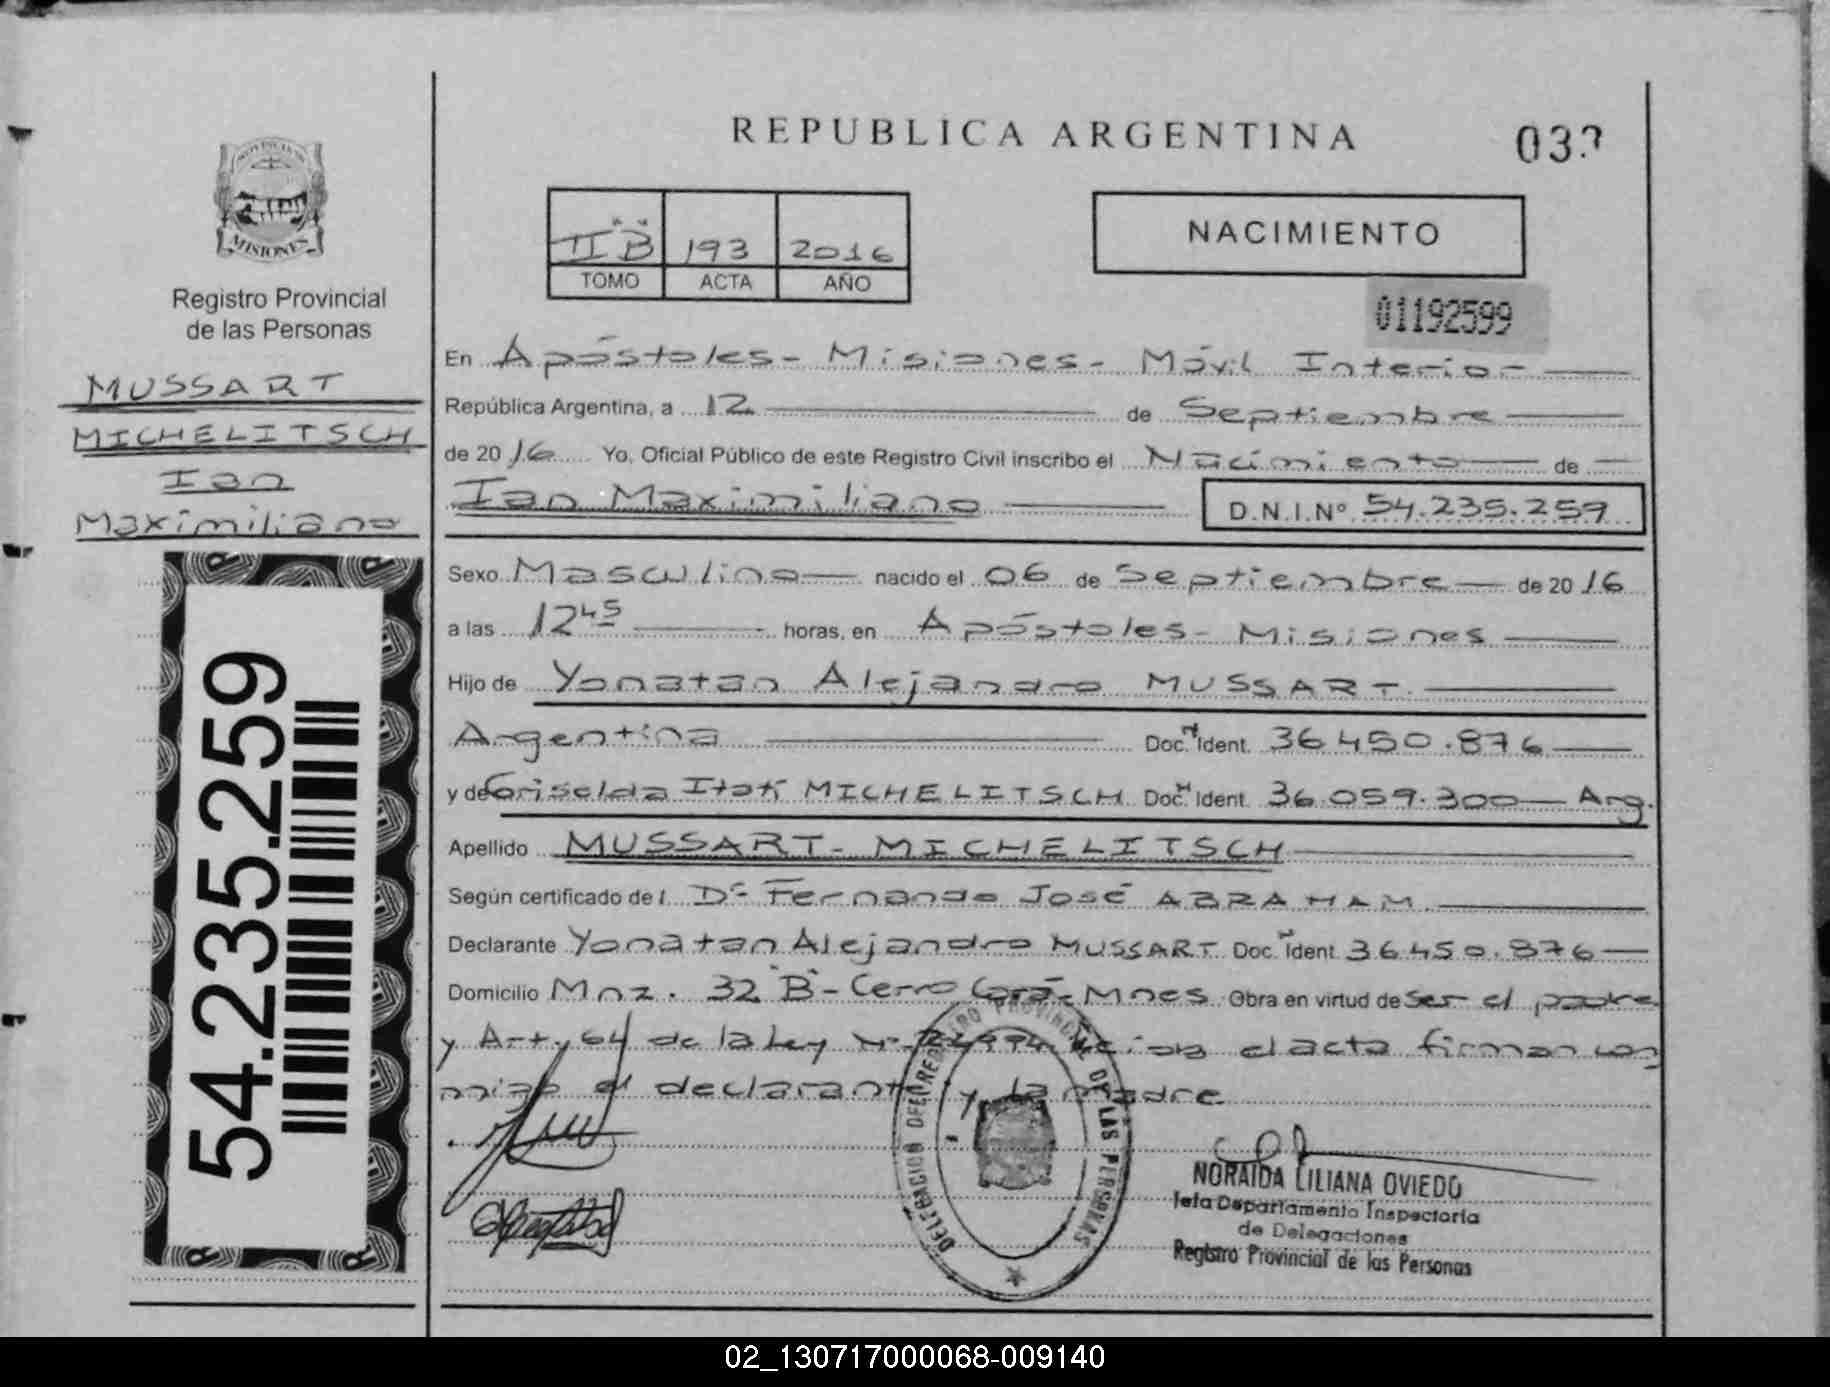 REPUBLICA ARGENTINA
PROVINCIA DE
MISIONES
Registro Provincial
de las Personas
MUSSART
MICHELITSCH
Ian
Maximiliano
54.235.259
II "B" 193 2016
TOMO ACTA AÑO
NACIMIENTO
01192599
En Apóstoles - Misiones - Móvil Interior
República Argentina, a 12 de Septiembre
de 2016 Yo, Oficial Público de este Registro Civil inscribo el Nacimiento de
Ian Maximiliano D.N.I.Nº 54.235.259
Sexo Masculino nacido el 06 de Septiembre de 2016
a las 12 45 horas, en Apóstoles - Misiones
Hijo de Yonatan Alejandro MUSSART
Argentina Doc. Ident. 36.450.876
y de Griselda Itatí MICHELITSCH Doc. Ident. 36.059.300 Arg.
Apellido MUSSART - MICHELITSCH
Según certificado de l Dr Fernando José ABRAHAM
Declarante Yonatan Alejandro MUSSART Doc. Ident. 36.450.876
Domicilio Mnz. 32 "B" - Cerro Corá - Mnes Obra en virtud de ser el padre
y Art 64 de la Ley el acta firman con
migo el declarante y la madre
DELEGACION DEL REGISTRO PROVINCIAL DE LAS PERSONAS
NORAIDA LILIANA OVIEDO
Jefa Departamento Inspectoria
de Delegaciones
Registro Provincial de las Personas
02_130717000068-009140